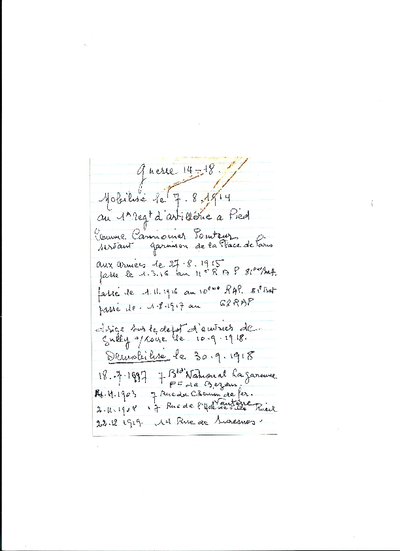 Guerre 14-18.
Mobilisé le 7.8.1914
au 1er Regt d'artillerie a Pied
Comme Cannonier Pointeur
servant garnison de la Place de Paris
aux armées le 27-8.1915
passe le 1.3.16 au 11e R A P
passé le 1.11.1916 au 10eme RAP.
passé le 1.8.1917 au 68RAP
dirigé sur le depot d'ouvriers de
Sully s/Loire le 10.9.1918.
Demobilisé le 30.9.1918
18.7.1897 7 Bld National La garenne
.11.1903 7 Rue du Chemin de fer.
Nanterre
2.11.1908 7 Rue de l'Hotel de Ville Rueil
22.12 1919 14 Rue de Suresnes.